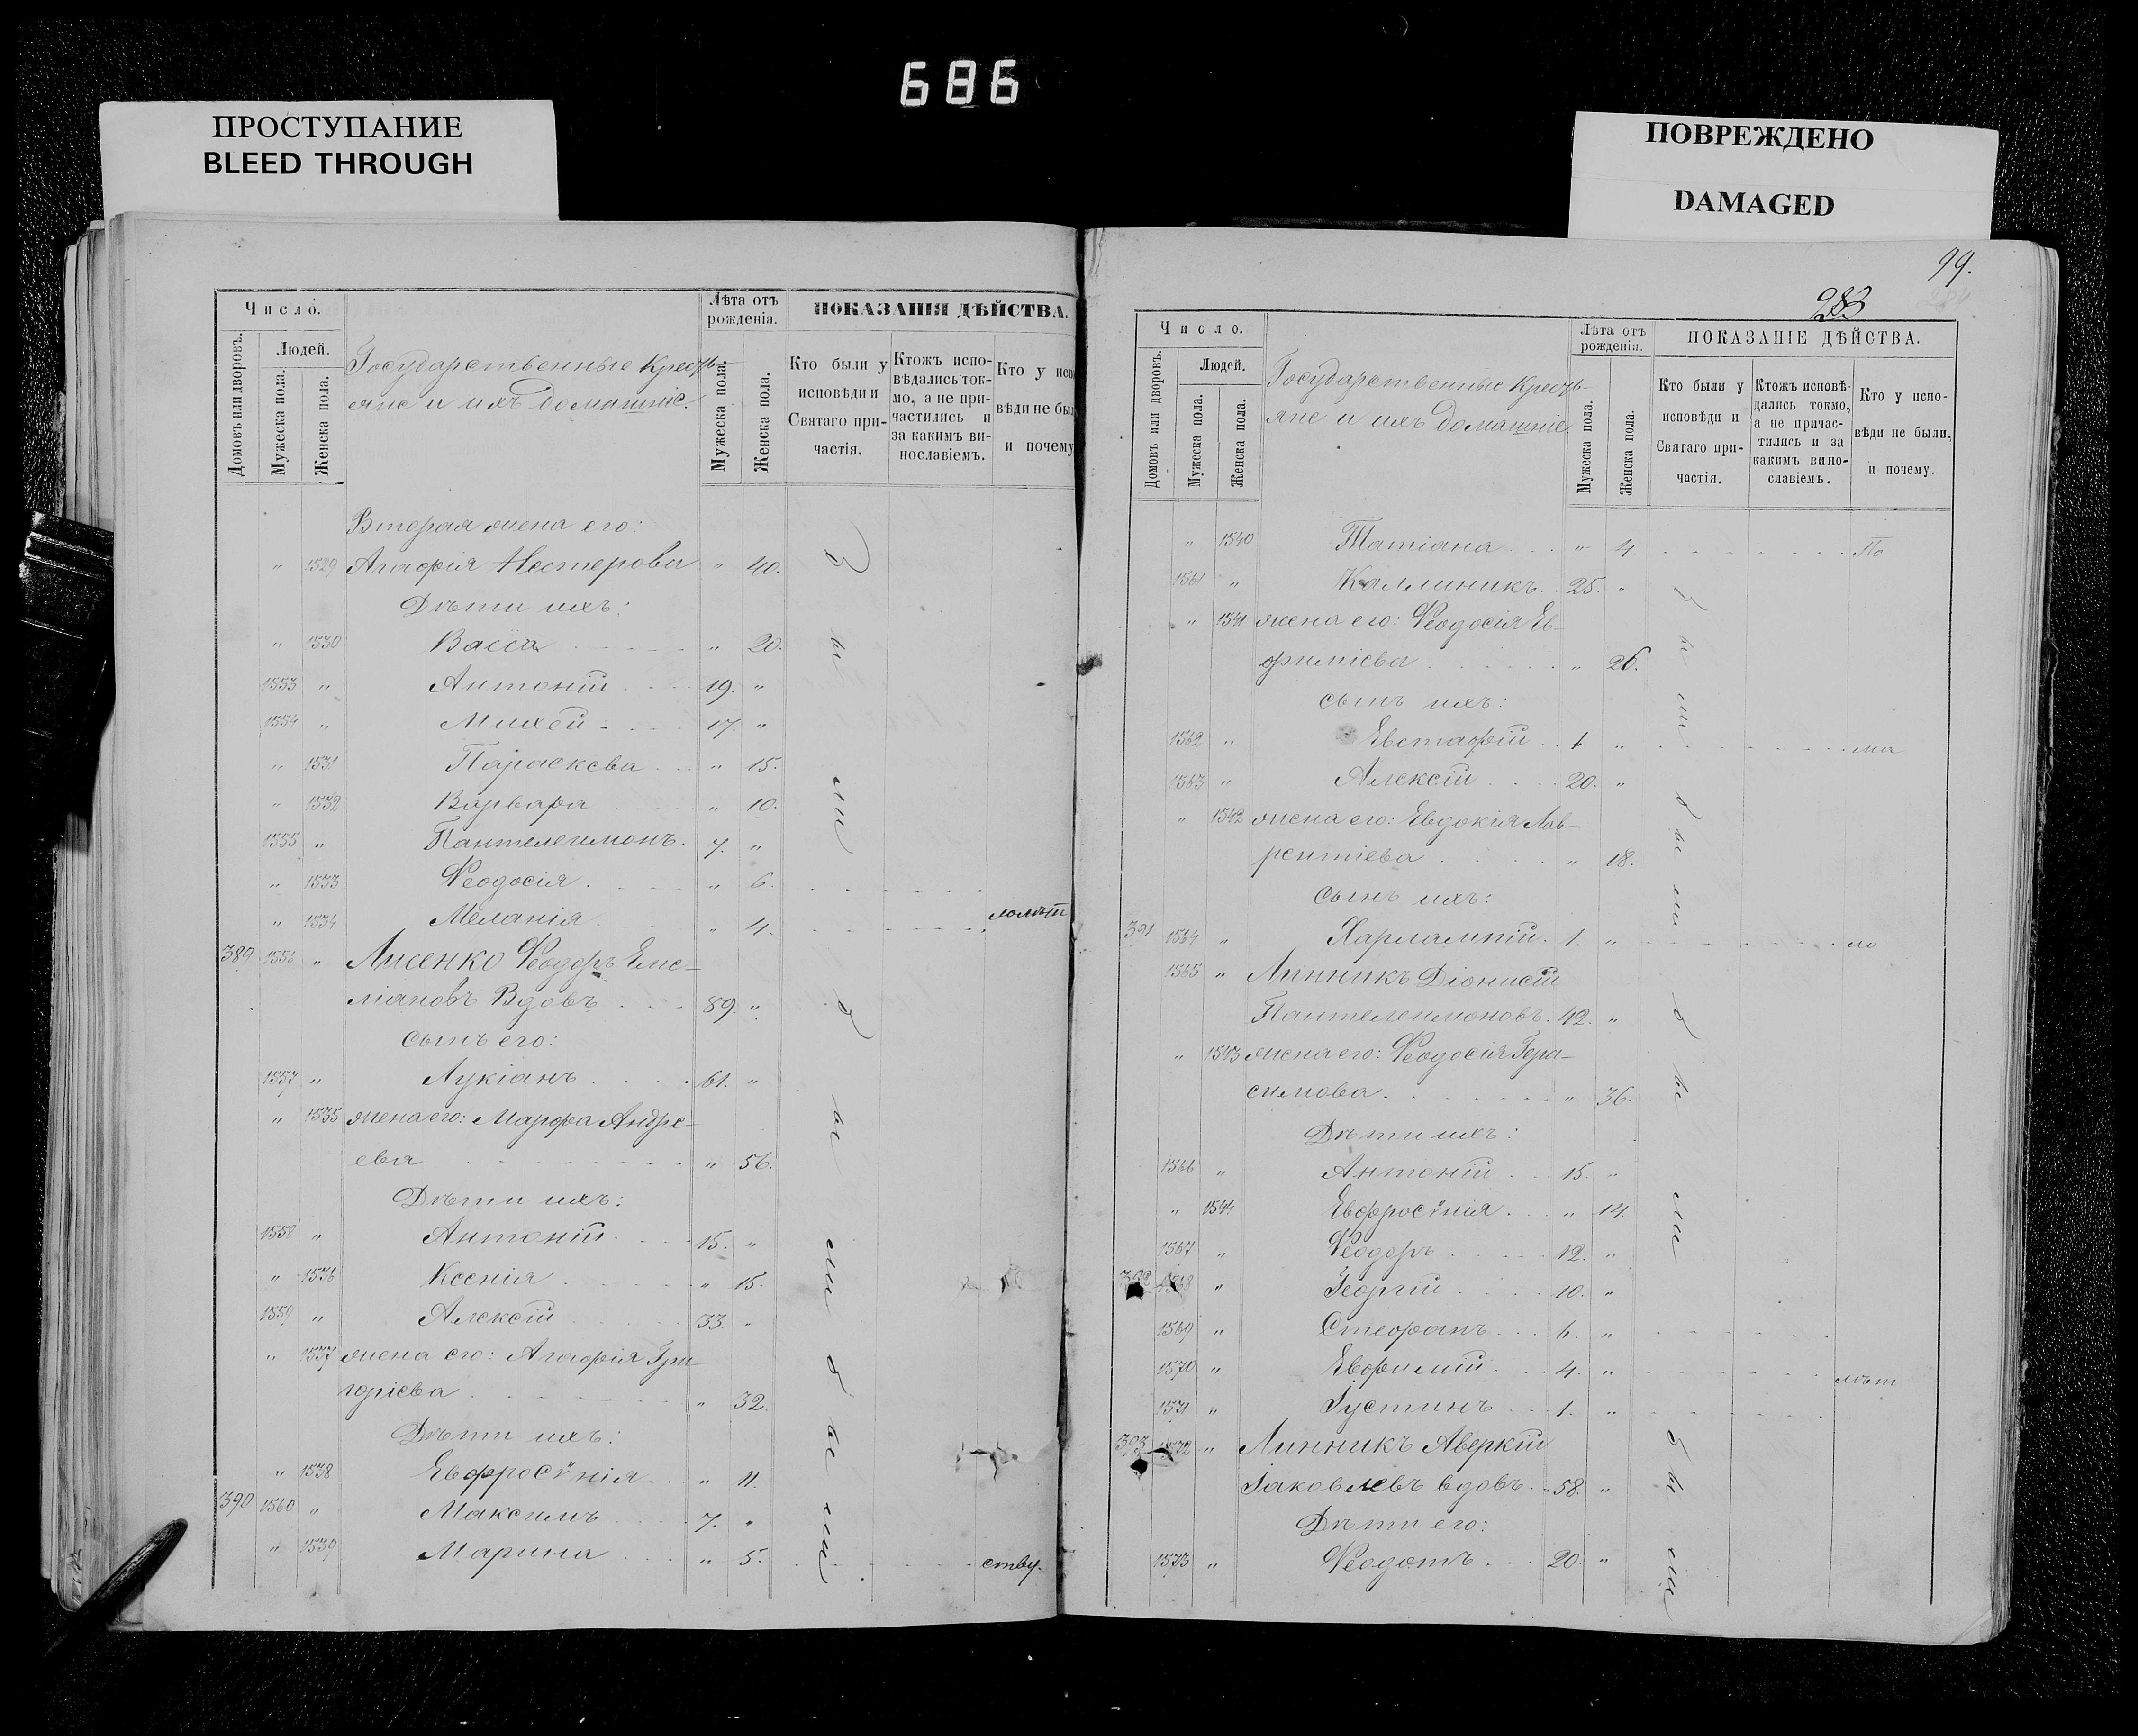 686
ПРОСТУПАНИЕ
BLEED THROUGH
ПОВРЕЖДЕНО
DAMAGED
Число.
Лѣта отъ рожденія.
ПОКАЗАНІЯ ДѢЙСТВА.
Домовъ или дворовъ.
Людей.
Мужеска пола.
Женска пола.
Государственные Кресть-
яне и ихъ домашніе.
Мужеска пола.
Женска пола.
Кто были у исповѣди и Святаго при-частія.
Ктожъ испо-вѣдались ток-мо, а не при-частились и за какимъ ви-нославіемъ.
Кто у испо
вѣди не был
и почему
Вторая жена его:
" 1529 Агафія Нестерова " 40.
Дѣти ихъ:
" 1530 Васса " 20.
1553 " Антоній 19. "
1554 " Михей 17. "
" 1531 Параскева " 15.
" 1532 Варвара " 10.
1555 " Пантелеимонъ. 7. "
" 1533 Ѳеодосія " 6.
" 1534 Меланія " 4. лолѣт
389 1556 " Лисенко Ѳеодоръ Еме-
ліановъ Вдовъ 89. "
сынъ его:
1557 " Лукіанъ 61. "
" 1535 жена его: Марфа Андре-
ева " 56.
Дѣти ихъ:
1558 " Антоній 15. "
" 1536 Ксенія " 15.
1559 " Алексій 33. "
" 1537 жена его: Агафія Гри
горіева " 32.
Дѣти ихъ:
" 1538 Евфросѵнія " 11.
390 1560 " Максимъ 7. "
" 1539 Марина " 5. ству.
бы
ли
бы
ли
бы
ли
99.
283
Число.
Лѣта отъ рожденія.
ПОКАЗАНІЕ ДѢЙСТВА.
Домовъ или дворовъ.
Людей.
Мужеска пола.
Женска пола.
Государственные Кресть-
яне и ихъ домашніе.
Мужеска пола.
Женска пола.
Кто были у исповѣди и Святаго при-частія.
Ктожъ исповѣ-дались токмо, а не причас-тились и за какимъ вино-славіемъ.
Кто у испо-вѣди не были, и почему.
" 1540 Татіана " 4. По
1561 " Каллиникъ 25. "
" 1541 жена его: Ѳеодосія Ев-
фиміева " 26.
сынъ ихъ:
1562 " Евстафій 1 " ма
1563 " Алексій 20. "
" 1542 жена его: Евдокія Лав-
рентіева " 18.
Сынъ ихъ:
391 1564 " Харлампій. 1. " ло
1565 " Линникъ Діонисій
Пантелеимоновъ. 42. "
" 1543 жена его: Ѳеодосія Гера-
симова " 36.
Дѣти ихъ:
1566 " Антоній 15. "
" 1544 Евфросѵнія " 14.
1567 " Ѳеодоръ 12. "
392 1568 " Георгій 10. "
1569 " Стефанъ 6. "
1570 " Евфимій 4. " лѣт
1571 " Іустинъ 1. "
393 1572 " Линникъ Аверкій
Іаковлевъ вдовъ. 58. "
Дѣти его:
1573 " Ѳеодотъ 20. "
бы
ли
бы
ли
бы
ли
бы
ли